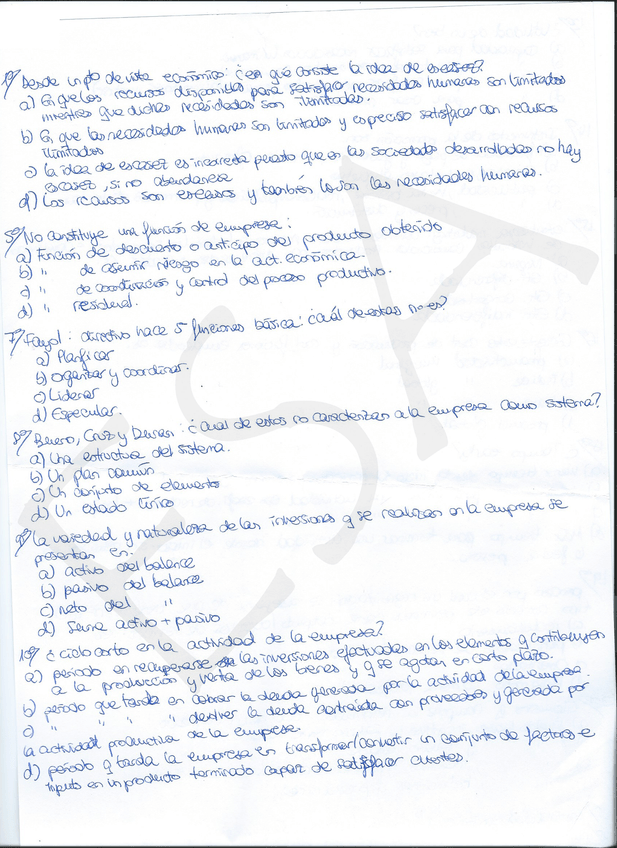 1º/ Desde un pto de vista económico: ¿en qué consiste la idea de escasez?
a) En que los recursos disponibles para satisfacer necesidades humanas son limitados
mientras que dichas necesidades son ilimitadas.
b) En que las necesidades humanas son limitadas y es preciso satisfacer con recursos
ilimitados
c) la idea de escasez es incorrecta puesto que en las sociedades desarrolladas no hay
escasez, si no abundancia
d) Los recursos son escasos y también lo son las necesidades humanas.
5º/ No constituye una función de empresa:
a) Función de descuento o anticipo del producto obtenido
b) " de asumir riesgo en la act. económica.
c) " de coordinación y control del proceso productivo.
d) " residual.
7º/ Fayol: directivo hace 5 funciones básica: ¿cuál de estas no es?
a) Planificar
b) Organizar y coordinar.
c) Liderar
d) Especular.
8º/ Bueno, Cruz y Durán: ¿cual de estos no caracterizan a la empresa como sistema?
a) Una estructura del sistema.
b) Un plan común
c) Un conjunto de elemento
d) Un estado único
9º/ La variedad y naturaleza de las inversiones q se realizan en la empresa se
presentan en:
a) activo del balance
b) pasivo del balance
c) neto del "
d) Suma activo + pasivo
10º/ ¿ciclo corto en la actividad de la empresa?
a) período en recuperarse las inversiones efectuadas en los elementos q contribuyen
a la producción y venta de los bienes y q se agotan en corto plazo.
b) período que tarda en cobrar la deuda generada por la actividad de la empresa.
c) " " " " devolver la deuda contraída con proveedores y generada por
la actividad productiva de la empresa.
d) período q tarda la empresa en transformar/convertir un conjunto de factores e
inputs en un producto terminado capaz de satisfacer clientes.
ESA